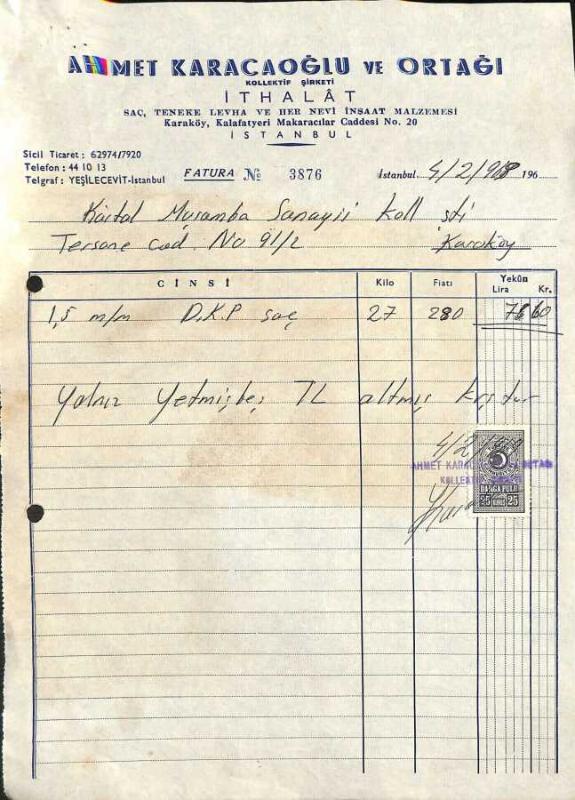 AHMET KARACAOĞLU VE ORTAĞI
KOLLEKTİF ŞİRKETİ
İTHALÂT
SAÇ, TENEKE LEVHA VE HER NEVİ İNŞAAT MALZEMESİ
Karaköy, Kalafatyeri Makaracılar Caddesi No. 20
İSTANBUL
Sicil Ticaret : 62974/7920
Telefon : 44 10 13
Telgraf : YEŞİLECEVİT-İstanbul
FATURA № 3876
İstanbul 4/2/968 196
Kartal Muşamba Sanayii koll şti
Tersane cad. No 91/2 Karaköy
CİNSİ Kilo Fiatı Yekûn
Lira Kr.
1,5 m/m D.K.P saç 27 280 75 60
Yalnız Yetmişbeş TL altmış krştur
4/2/
AHMET KARAC ORTAĞI
KOLLEKTİF
DAMGA PULU
25 KURUŞ 25